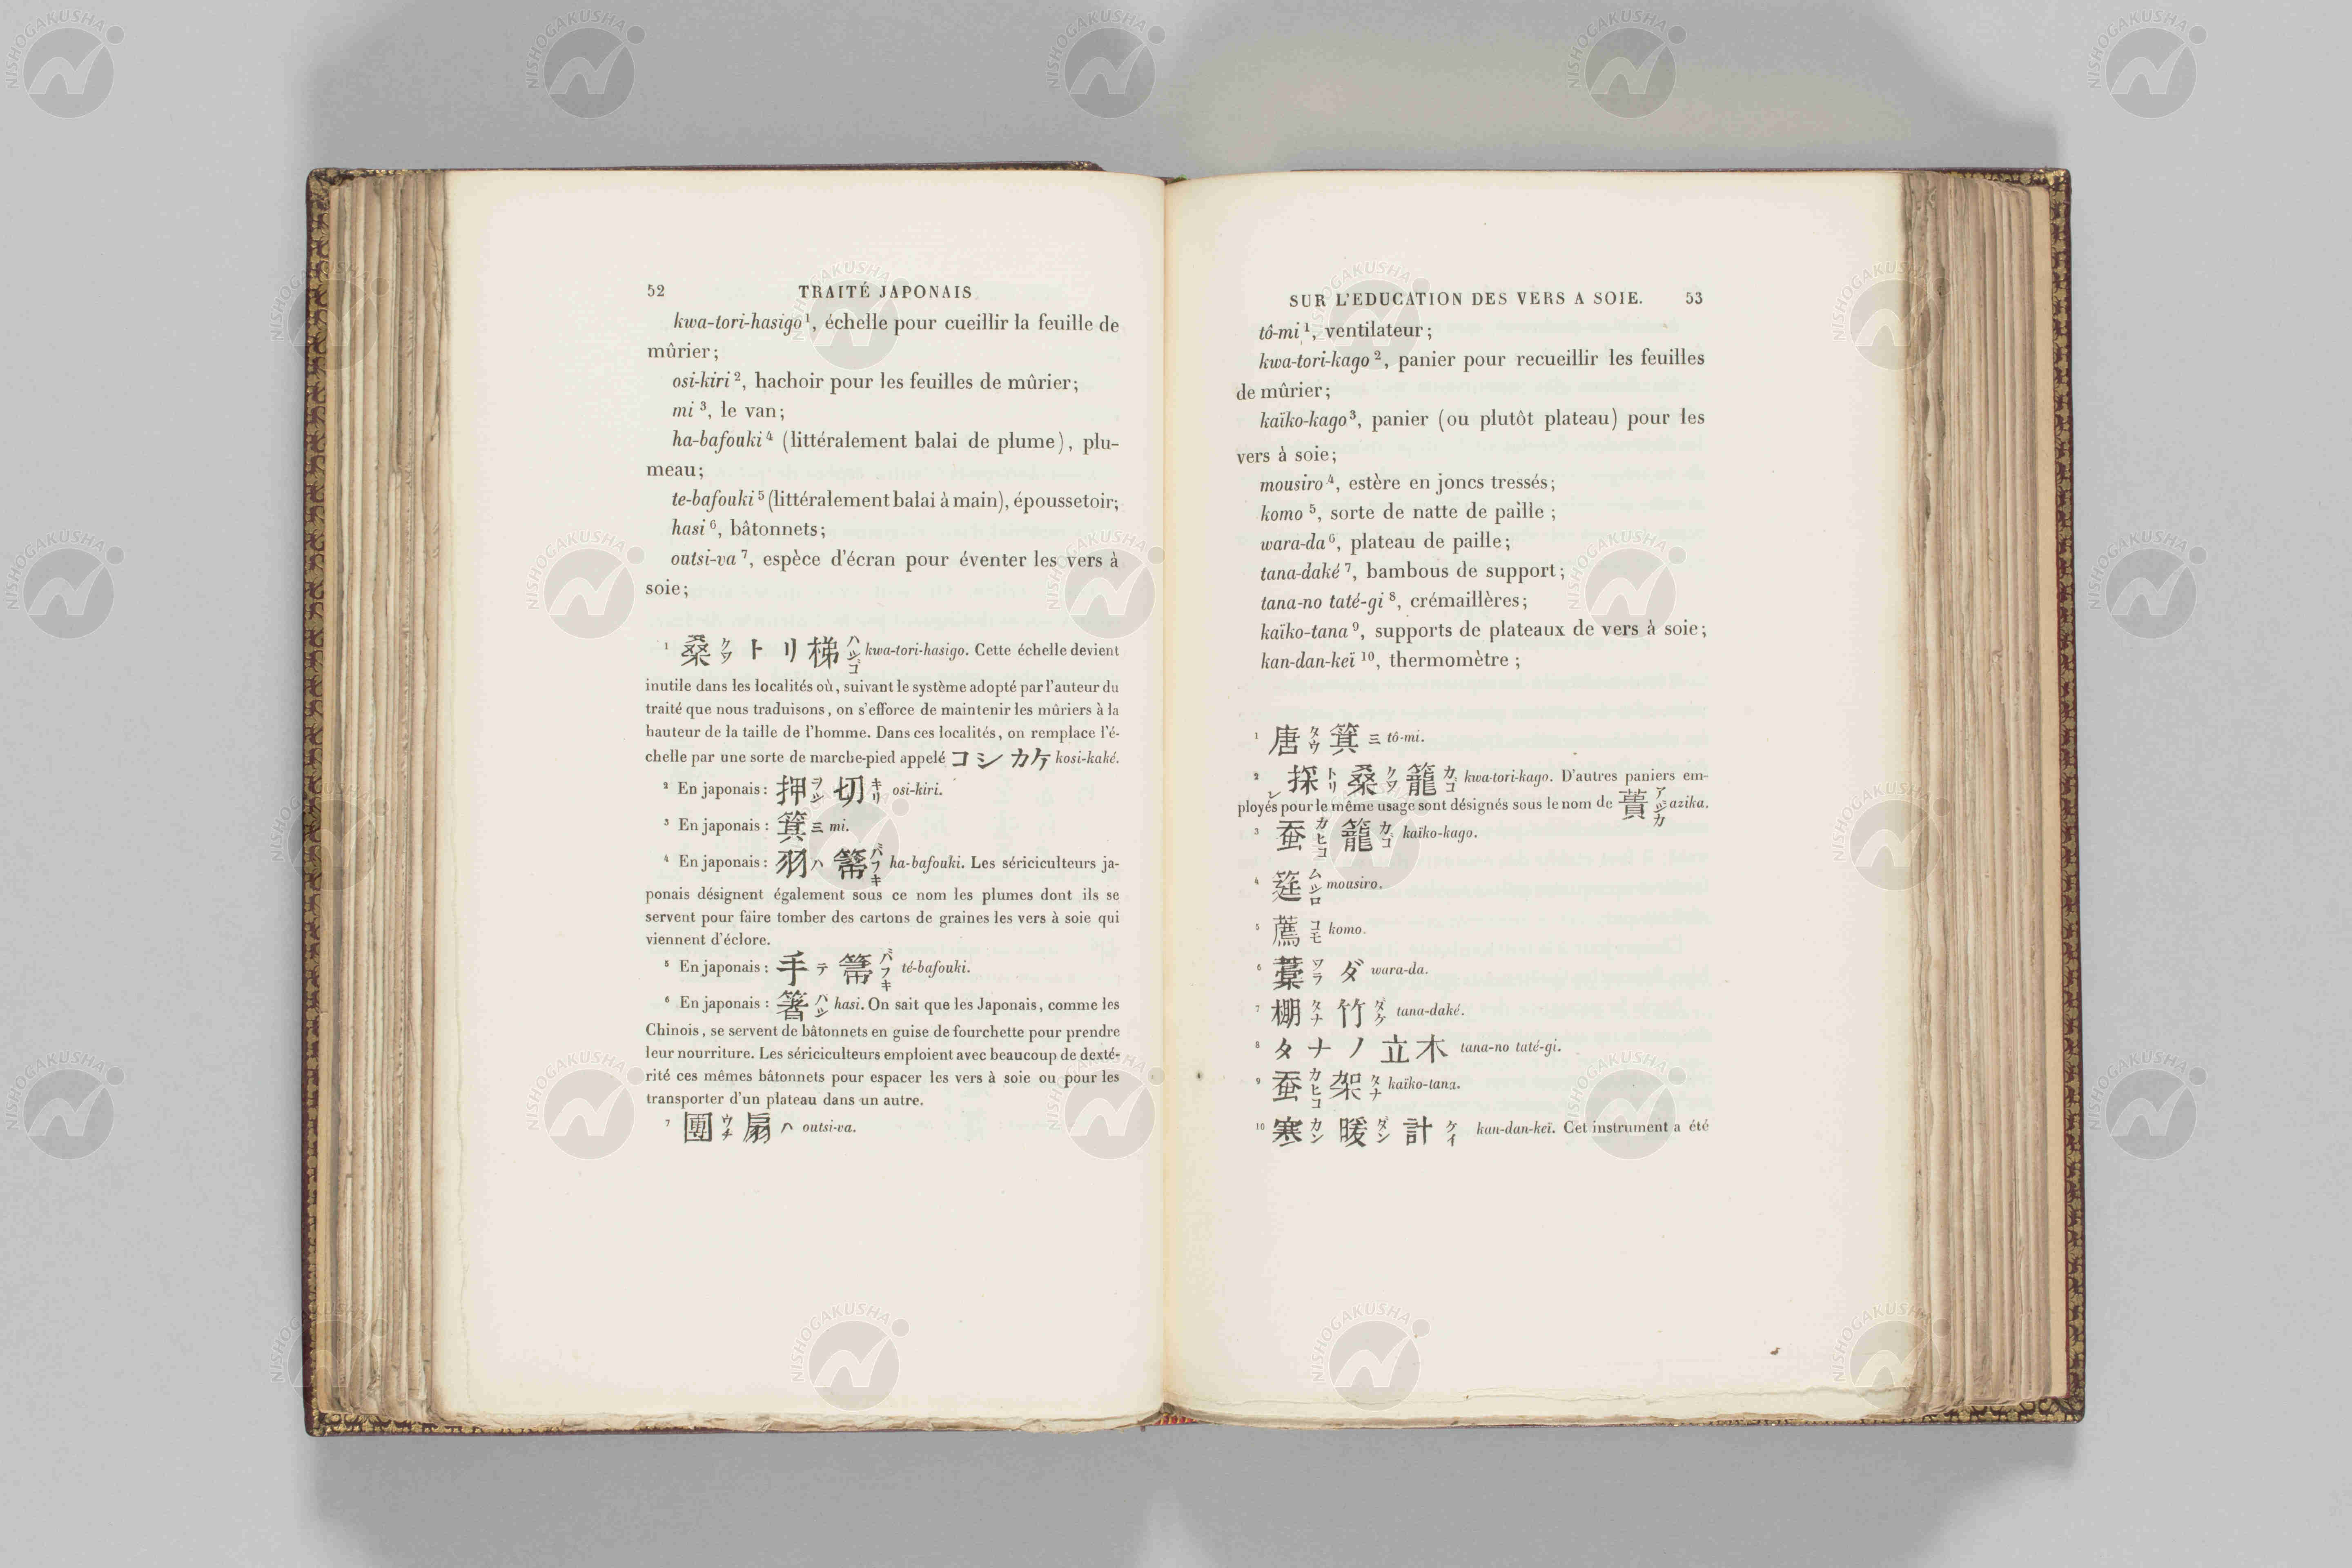 52 TRAITÉ JAPONAIS
kwa-tori-hasigo¹, échelle pour cueillir la feuille de
mûrier;
osi-kiri², hachoir pour les feuilles de mûrier;
mi³, le van;
ha-bafouki⁴ (littéralement balai de plume), plu-
meau;
te-bafouki⁵ (littéralement balai à main), époussetoir;
hasi⁶, bâtonnets;
outsi-va⁷, espèce d'écran pour éventer les vers à
soie;
¹ 桑クワトリ梯ハシゴ kwa-tori-hasigo. Cette échelle devient
inutile dans les localités où, suivant le système adopté par l'auteur du
traité que nous traduisons, on s'efforce de maintenir les mûriers à la
hauteur de la taille de l'homme. Dans ces localités, on remplace l'é-
chelle par une sorte de marche-pied appelé コシカケ kosi-kaké.
² En japonais: 押ヲシ切キリ osi-kiri.
³ En japonais: 箕ミ mi.
⁴ En japonais: 羽ハ箒バフキ ha-bafouki. Les sériciculteurs ja-
ponais désignent également sous ce nom les plumes dont ils se
servent pour faire tomber des cartons de graines les vers à soie qui
viennent d'éclore.
⁵ En japonais: 手テ箒バフキ té-bafouki.
⁶ En japonais: 箸ハシ hasi. On sait que les Japonais, comme les
Chinois, se servent de bâtonnets en guise de fourchette pour prendre
leur nourriture. Les sériciculteurs emploient avec beaucoup de dexté-
rité ces mêmes bâtonnets pour espacer les vers à soie ou pour les
transporter d'un plateau dans un autre.
⁷ 團ウチ扇ハ outsi-va.
SUR L'EDUCATION DES VERS A SOIE. 53
tô-mi¹, ventilateur;
kwa-tori-kago², panier pour recueillir les feuilles
de mûrier;
kaïko-kago³, panier (ou plutôt plateau) pour les
vers à soie;
mousiro⁴, estère en joncs tressés;
komo⁵, sorte de natte de paille;
wara-da⁶, plateau de paille;
tana-daké⁷, bambous de support;
tana-no taté-gi⁸, crémaillères;
kaïko-tana⁹, supports de plateaux de vers à soie;
kan-dan-keï¹⁰, thermomètre;
¹ 唐タウ箕ミ tô-mi.
² 採レトリ桑クワ籠カゴ kwa-tori-kago. D'autres paniers em-
ployés pour le même usage sont désignés sous le nom de 蕢アジカ azika.
³ 蚕カヒコ籠カゴ kaïko-kago.
⁴ 筵ムシロ mousiro.
⁵ 薦コモ komo.
⁶ 藁ワラダ wara-da.
⁷ 棚タナ竹ダケ tana-daké.
⁸ タナノ立木 tana-no taté-gi.
⁹ 蚕カヒコ架タナ kaïko-tana.
¹⁰ 寒カン暖ダン計ケイ kan-dan-keï. Cet instrument a été
NISHOGAKUSHA